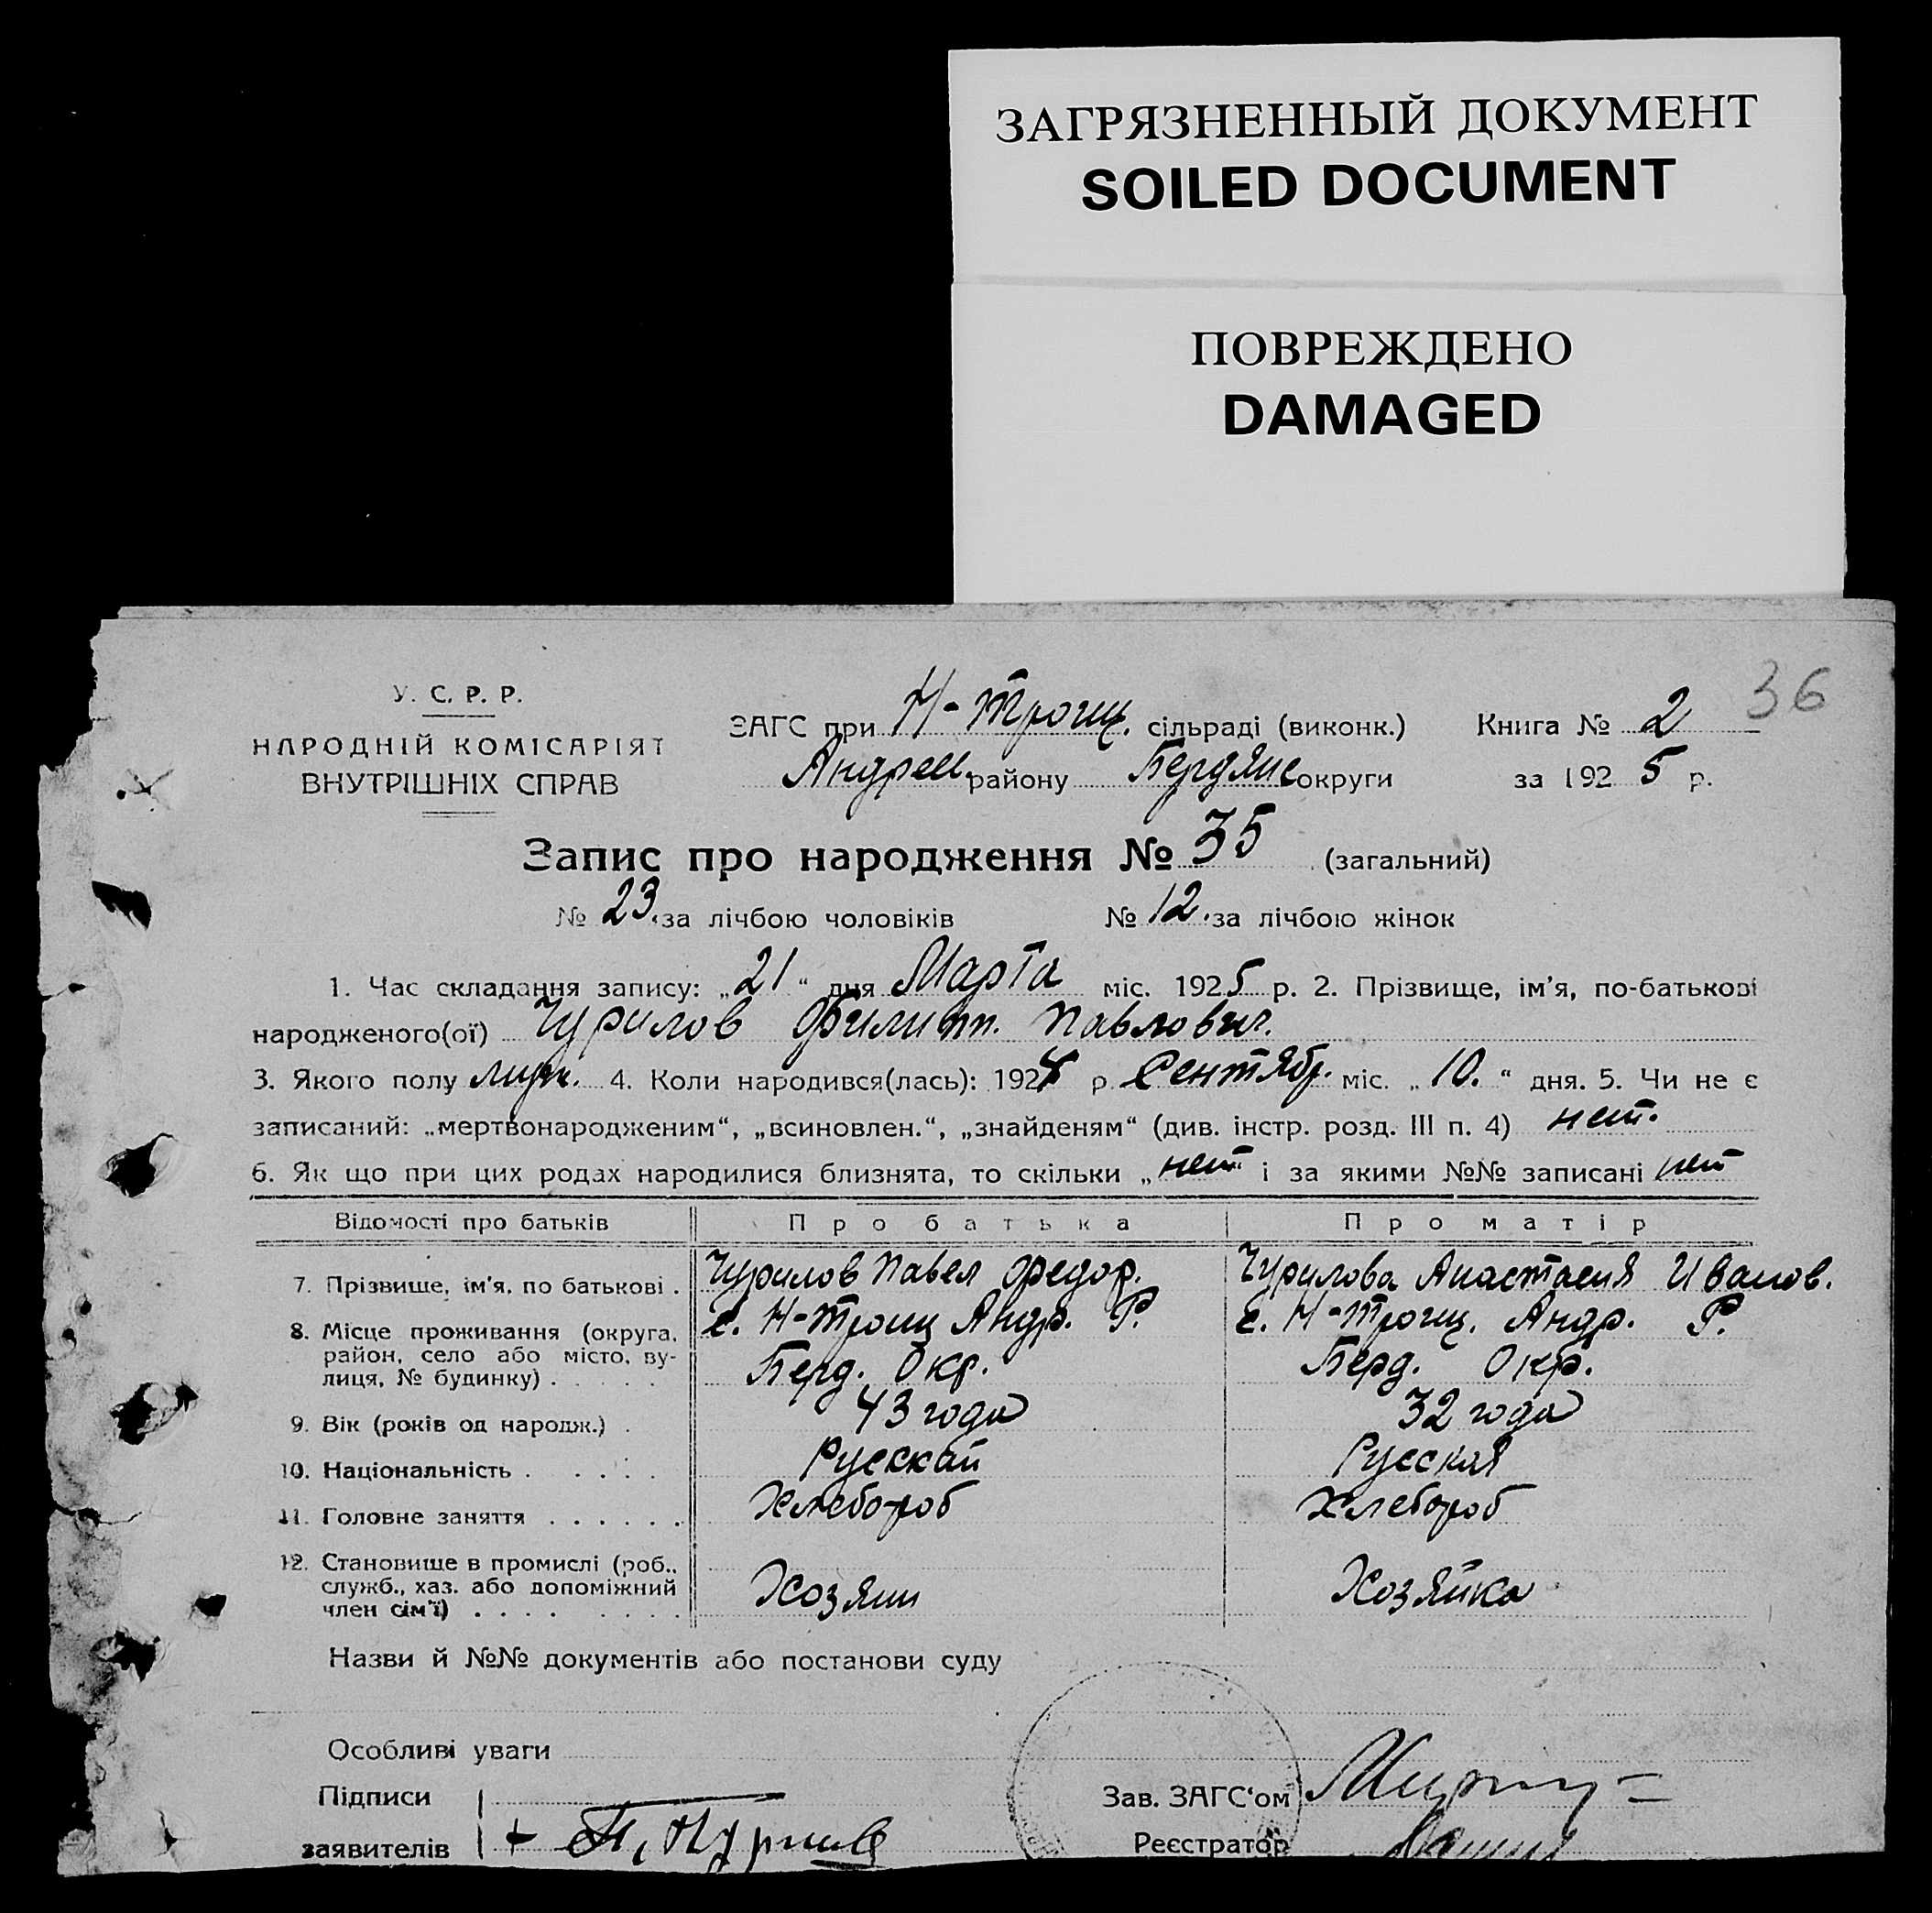 ЗАГРЯЗНЕННЫЙ ДОКУМЕНТ
SOILED DOCUMENT
ПОВРЕЖДЕНО
DAMAGED
36
У. С. Р. Р.
НАРОДНІЙ КОМІСАРІЯТ
ВНУТРІШНІХ СПРАВ
ЗАГС при Н-Троиц. сільраді (виконк.) Книга № 2
Андреев. району Бердянс округи за 1925 р.
Запис про народження № 35 (загальний)
№ 23. за лічбою чоловіків № 12. за лічбою жінок
1. Час складання запису: „21“ дня Марта міс. 1925 р. 2. Прізвище, ім'я, по-батькові
народженого(ої) Чурилов Филипп. Павлович.
3. Якого полу муж. 4. Коли народився(лась): 1924 р. Сентябр. міс. „10.“ дня. 5. Чи не є
записаний: „мертвонародженим“, „всиновлен.“, „знайденям“ (див. інстр. розд. III п. 4) нет.
6. Як що при цих родах народилися близнята, то скільки „нет“ і за якими №№ записані нет
Відомості про батьків Про батька Про матір
7. Прізвище, ім'я, по батькові . Чурилов Павел Федор. Чурилова Анастасия Иванов.
8. Місце проживання (округа, район, село або місто, ву-лиця, № будинку) . . . . . с. Н-Троиц Андр. Р. Берд. Окр. с. Н-Троиц. Андр. Р. Берд. Окр.
9. Вік (років од народж.) . 43 года 32 года
10. Національність . . . . . Русскай Русская
11. Головне заняття . . . . . . Хлебороб Хлебороб
12. Становище в промислі (роб., служб., хаз. або допоміжний член сім'ї) . . . . . . . . Хозяин Хозяйка
Назви й №№ документів або постанови суду
Особливі уваги
Підписи
Зав. ЗАГС'ом
заявителів
Реєстратор